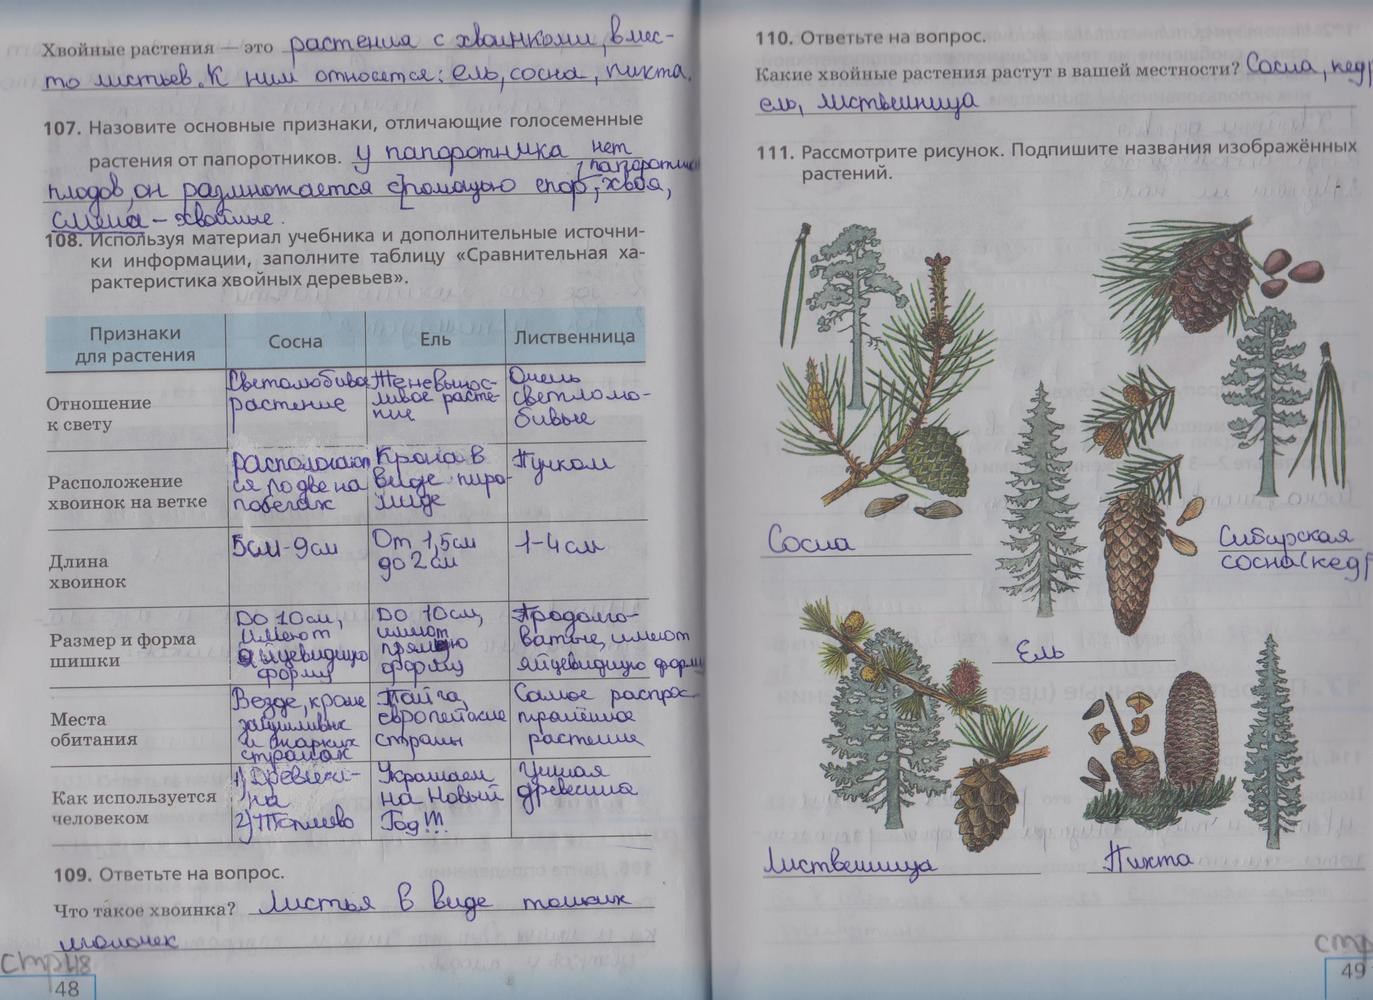 Хвойные растения — это растения с хвоинками, вмес-
то листьев. К ним относятся: ель, сосна, пихта.
107. Назовите основные признаки, отличающие голосеменные
растения от папоротников. У папоротника нет
плодов, он размножается с помощью спор, хвоя,
семена – хвойные.
108. Используя материал учебника и дополнительные источни-
ки информации, заполните таблицу «Сравнительная ха-
рактеристика хвойных деревьев».
Признаки
для растения
Сосна
Ель
Лиственница
Отношение
к свету
Светолюбивое
растение
Теневынос-
ливое расте-
ние
Очень
светлолю-
бивые
Расположение
хвоинок на ветке
располагают
ся по две на
побегах
Крона в
виде пира-
миде
Пучком
Длина
хвоинок
5см-9см
От 1,5см
до 2см
1-4 см
Размер и форма
шишки
До 10см,
имеют
яйцевидную
форму
До 10см,
имеют
прямую
форму
Продолго-
ватые, имеют
яйцевидную форму
Места
обитания
Везде, кроме
засушливых
и жарких
странах
Тайга,
европейские
страны
Самое распрос-
транённое
растение
Как используется
человеком
1) Древеси-
на
2) Топливо
Украшаем
на Новый
Год!!!
Ценная
древесина
109. Ответьте на вопрос.
Что такое хвоинка? Листья в виде тонких
иголочек
стр48
48
110. Ответьте на вопрос.
Какие хвойные растения растут в вашей местности? Сосна, кедр
ель, лиственница
111. Рассмотрите рисунок. Подпишите названия изображённых
растений.
Сосна
Сибирская
сосна(кедр
Ель
Лиственница
Пихта
стр
49